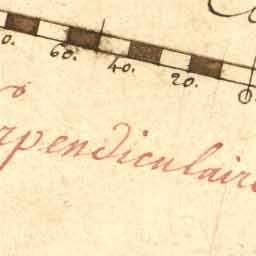 60. 40. 20. 0
erpendiculaire